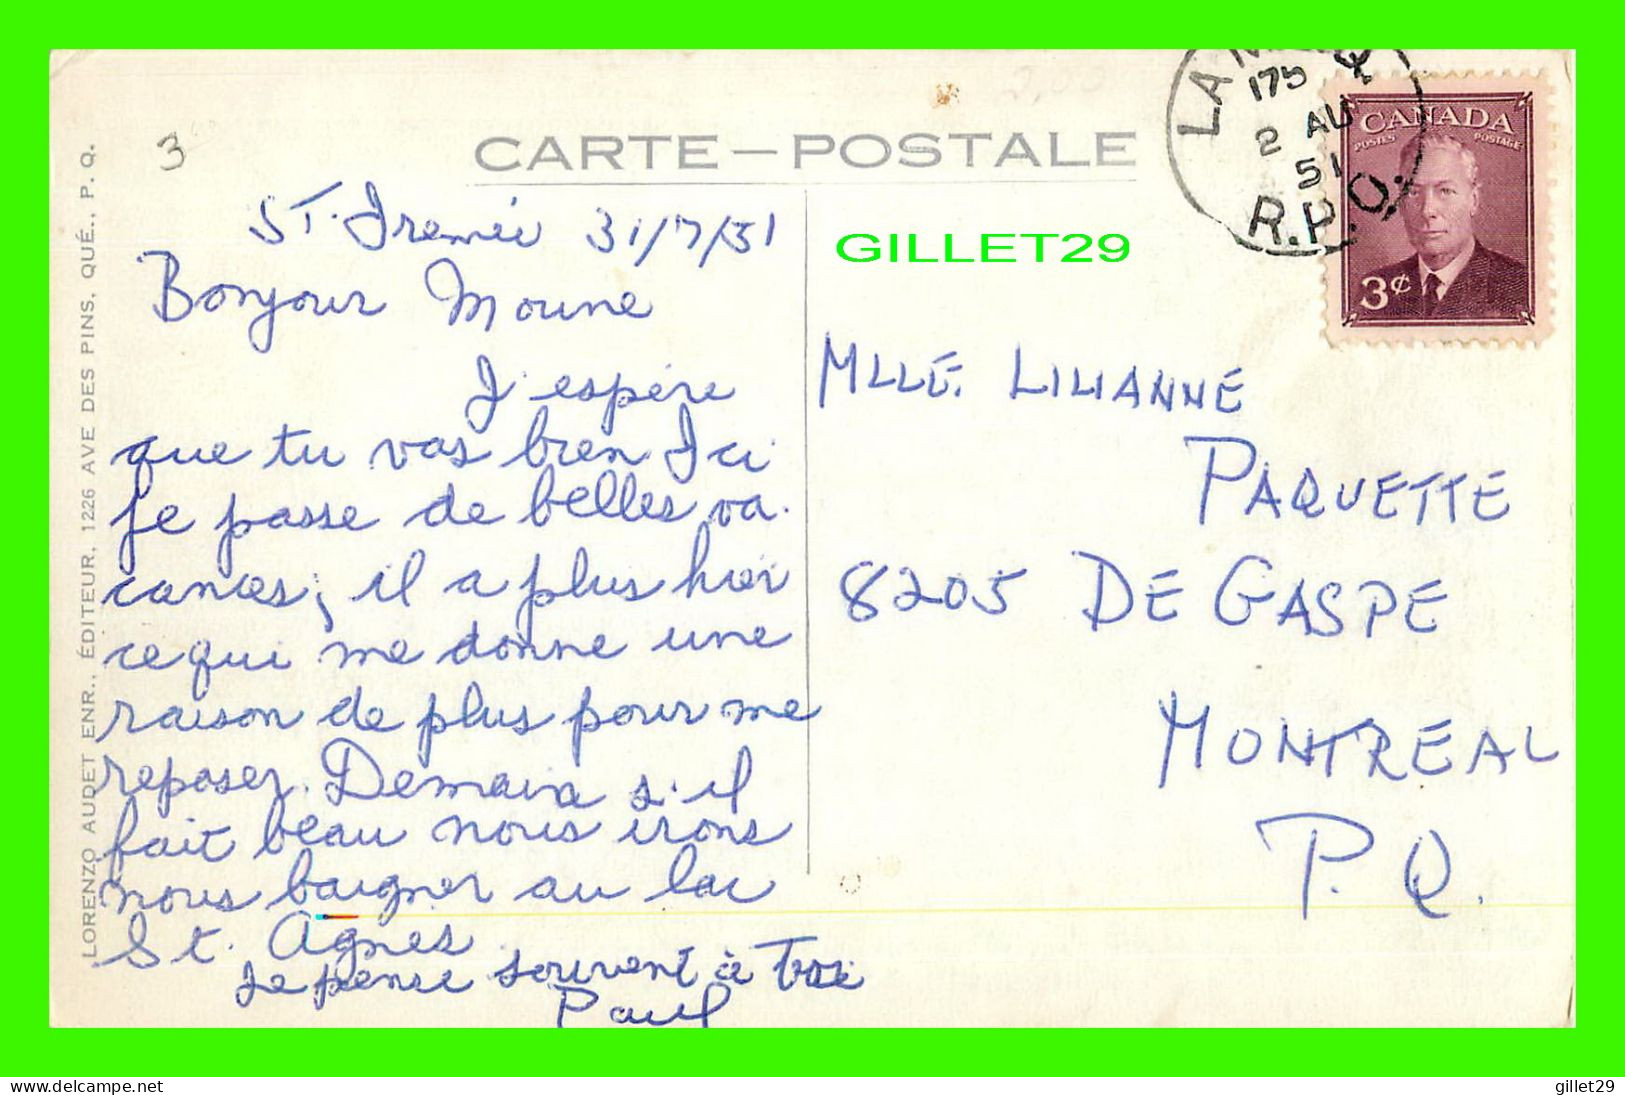 CARTE — POSTALE
LORENZO AUDET ENR., ÉDITEUR, 1226 AVE DES PINS, QUÉ., P. Q.
3
2,00
ST. Irenéé 31/7/51
Bonjour Moune
J'espère
que tu vas bien Ici
je passe de belles va-
cances, il a plus hier
ce qui me donne une
raison de plus pour me
reposer. Demain s'il
fait beau nous irons
nous baigner au lac
St. Agnes.
Je pense souvent à toi
Paul
175
2 AU
51
R.P.O.
CANADA
POSTES POSTAGE
3¢
GILLET29
MLLE. LILIANNE
PAQUETTE
8205 DE GASPE
MONTREAL
P.Q.
www.delcampe.net
gillet29